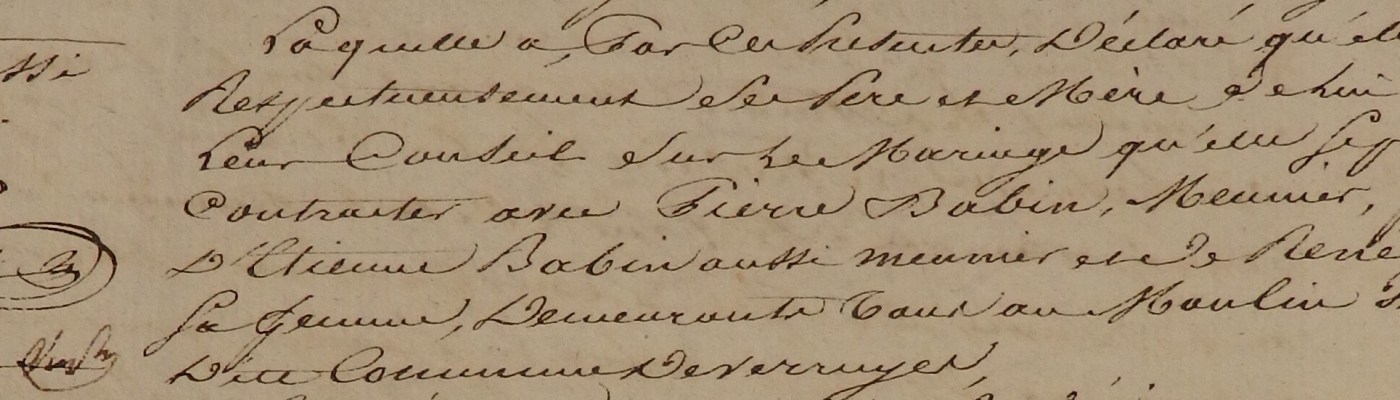 Laquelle a, Par Ces Présentes, Déclaré qu'ell
Respectueusement Ses Père et Mère de Lui
Leur Conseil Sur Le Mariage qu'elle Se p
Contracter avec Pierre Babin, Meunier,
D'Etienne Babin aussi meunier et De Rene
Sa femme, Demeurants tous au Moulin d
Dite Commune De Verruyes,